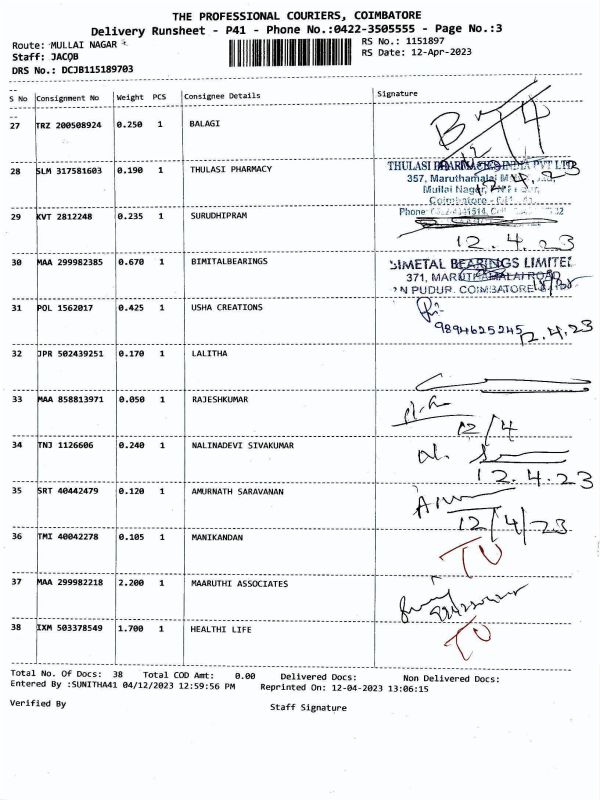 THE PROFESSIONAL COURIERS, COIMBATORE
Delivery Runsheet - P41 - Phone No.:0422-3505555 - Page No.:3
Route: MULLAI NAGAR
RS No.: 1151897
Staff: JACOB
RS Date: 12-Apr-2023
DRS No.: DCJB115189703
S No Consignment No Weight PCS Consignee Details Signature
27 TRZ 200508924 0.250 1 BALAGI
28 SLM 317581603 0.190 1 THULASI PHARMACY
THULASI PHARMACIES INDIA PVT LTD
357, Maruthamalai
12.4.23
Mullai Nagar,
Coimbatore
Phone
29 KVT 2812248 0.235 1 SURUDHIPRAM
12.4.23
30 MAA 299982385 0.670 1 BIMITALBEARINGS
BIMETAL BEARINGS LIMITED
371, MARUTHAMALAI ROAD
N PUDUR, COIMBATORE
31 POL 1562017 0.425 1 USHA CREATIONS
9894625245
12.4.23
32 JPR 502439251 0.170 1 LALITHA
33 MAA 858813971 0.050 1 RAJESHKUMAR
12/4
34 TNJ 1126606 0.240 1 NALINADEVI SIVAKUMAR
12.4.23
35 SRT 40442479 0.120 1 AMURNATH SARAVANAN
12/4/23
36 TMI 40042278 0.105 1 MANIKANDAN
TU
37 MAA 299982218 2.200 1 MAARUTHI ASSOCIATES
38 IXM 503378549 1.700 1 HEALTHI LIFE
TU
Total No. Of Docs: 38 Total COD Amt: 0.00 Delivered Docs: Non Delivered Docs:
Entered By :SUNITHA41 04/12/2023 12:59:56 PM Reprinted On: 12-04-2023 13:06:15
Verified By
Staff Signature